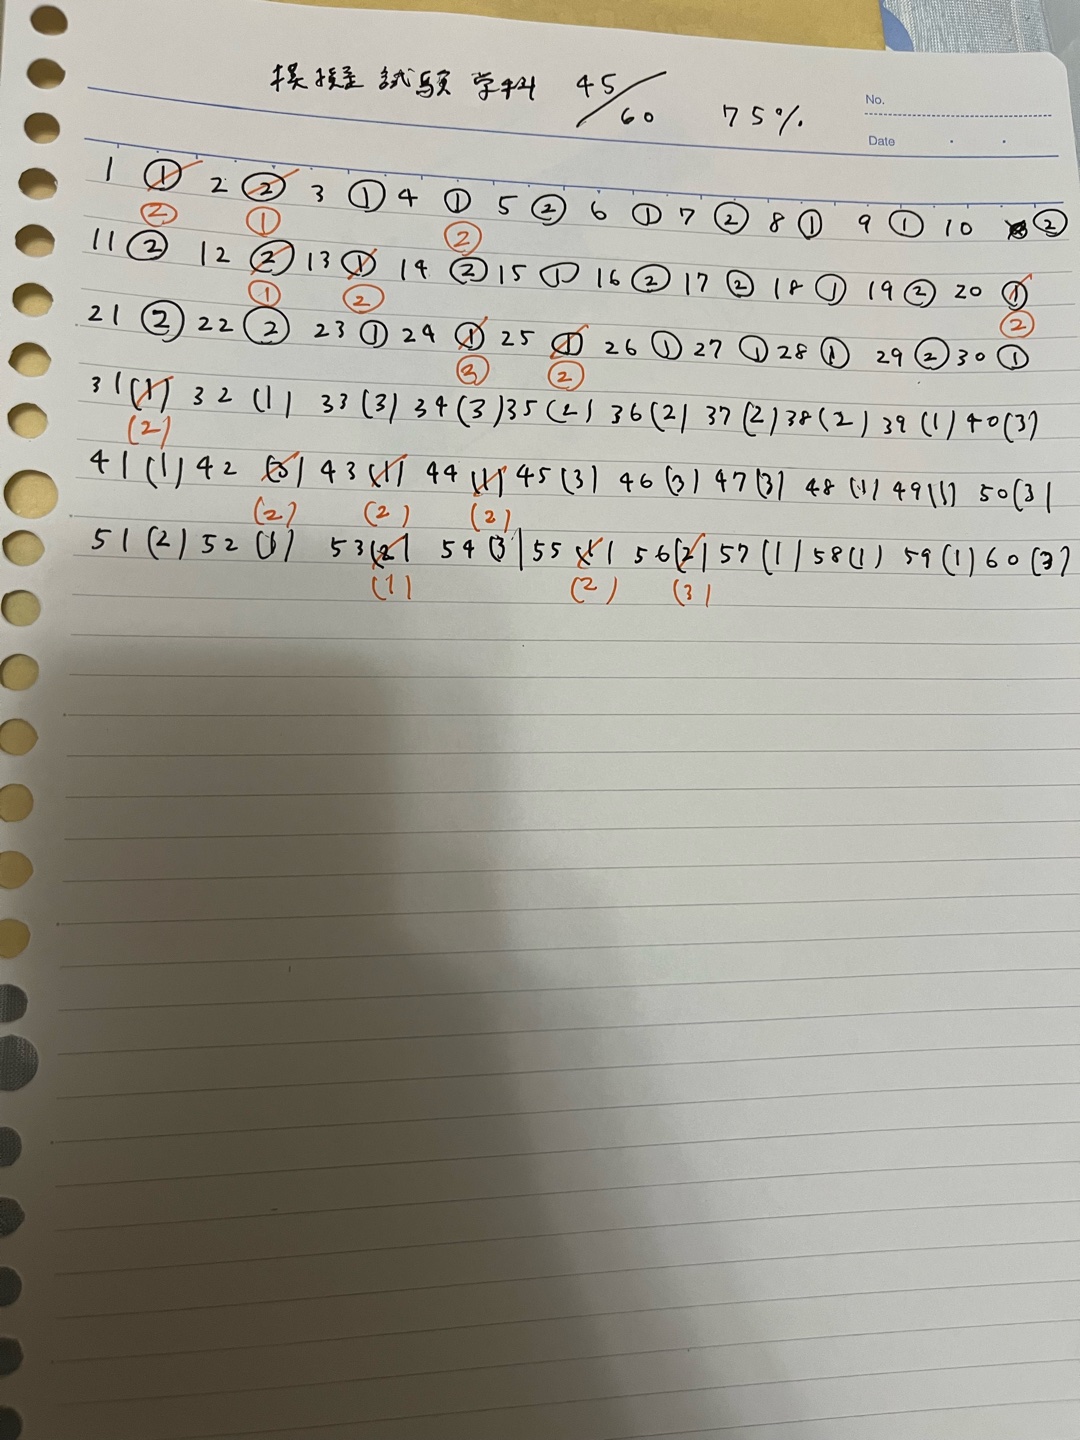 模擬試験 学科 45/60 75%
No.
Date
1 ① 2 ② 3 ① 4 ① 5 ② 6 ① 7 ② 8 ① 9 ① 10 ②
② ① ②
11 ② 12 ② 13 ① 14 ② 15 ① 16 ② 17 ② 18 ① 19 ② 20 ①
① ② ②
21 ② 22 ② 23 ① 24 ① 25 ① 26 ① 27 ① 28 ① 29 ② 30 ①
③ ②
31 (1) 32 (1) 33 (3) 34 (3) 35 (2) 36 (2) 37 (2) 38 (2) 39 (1) 40 (3)
(2)
41 (1) 42 (3) 43 (1) 44 (1) 45 (3) 46 (3) 47 (3) 48 (1) 49 (1) 50 (3)
(2) (2) (2)
51 (2) 52 (1) 53 (2) 54 (3) 55 (1) 56 (2) 57 (1) 58 (1) 59 (1) 60 (3)
(1) (2) (3)